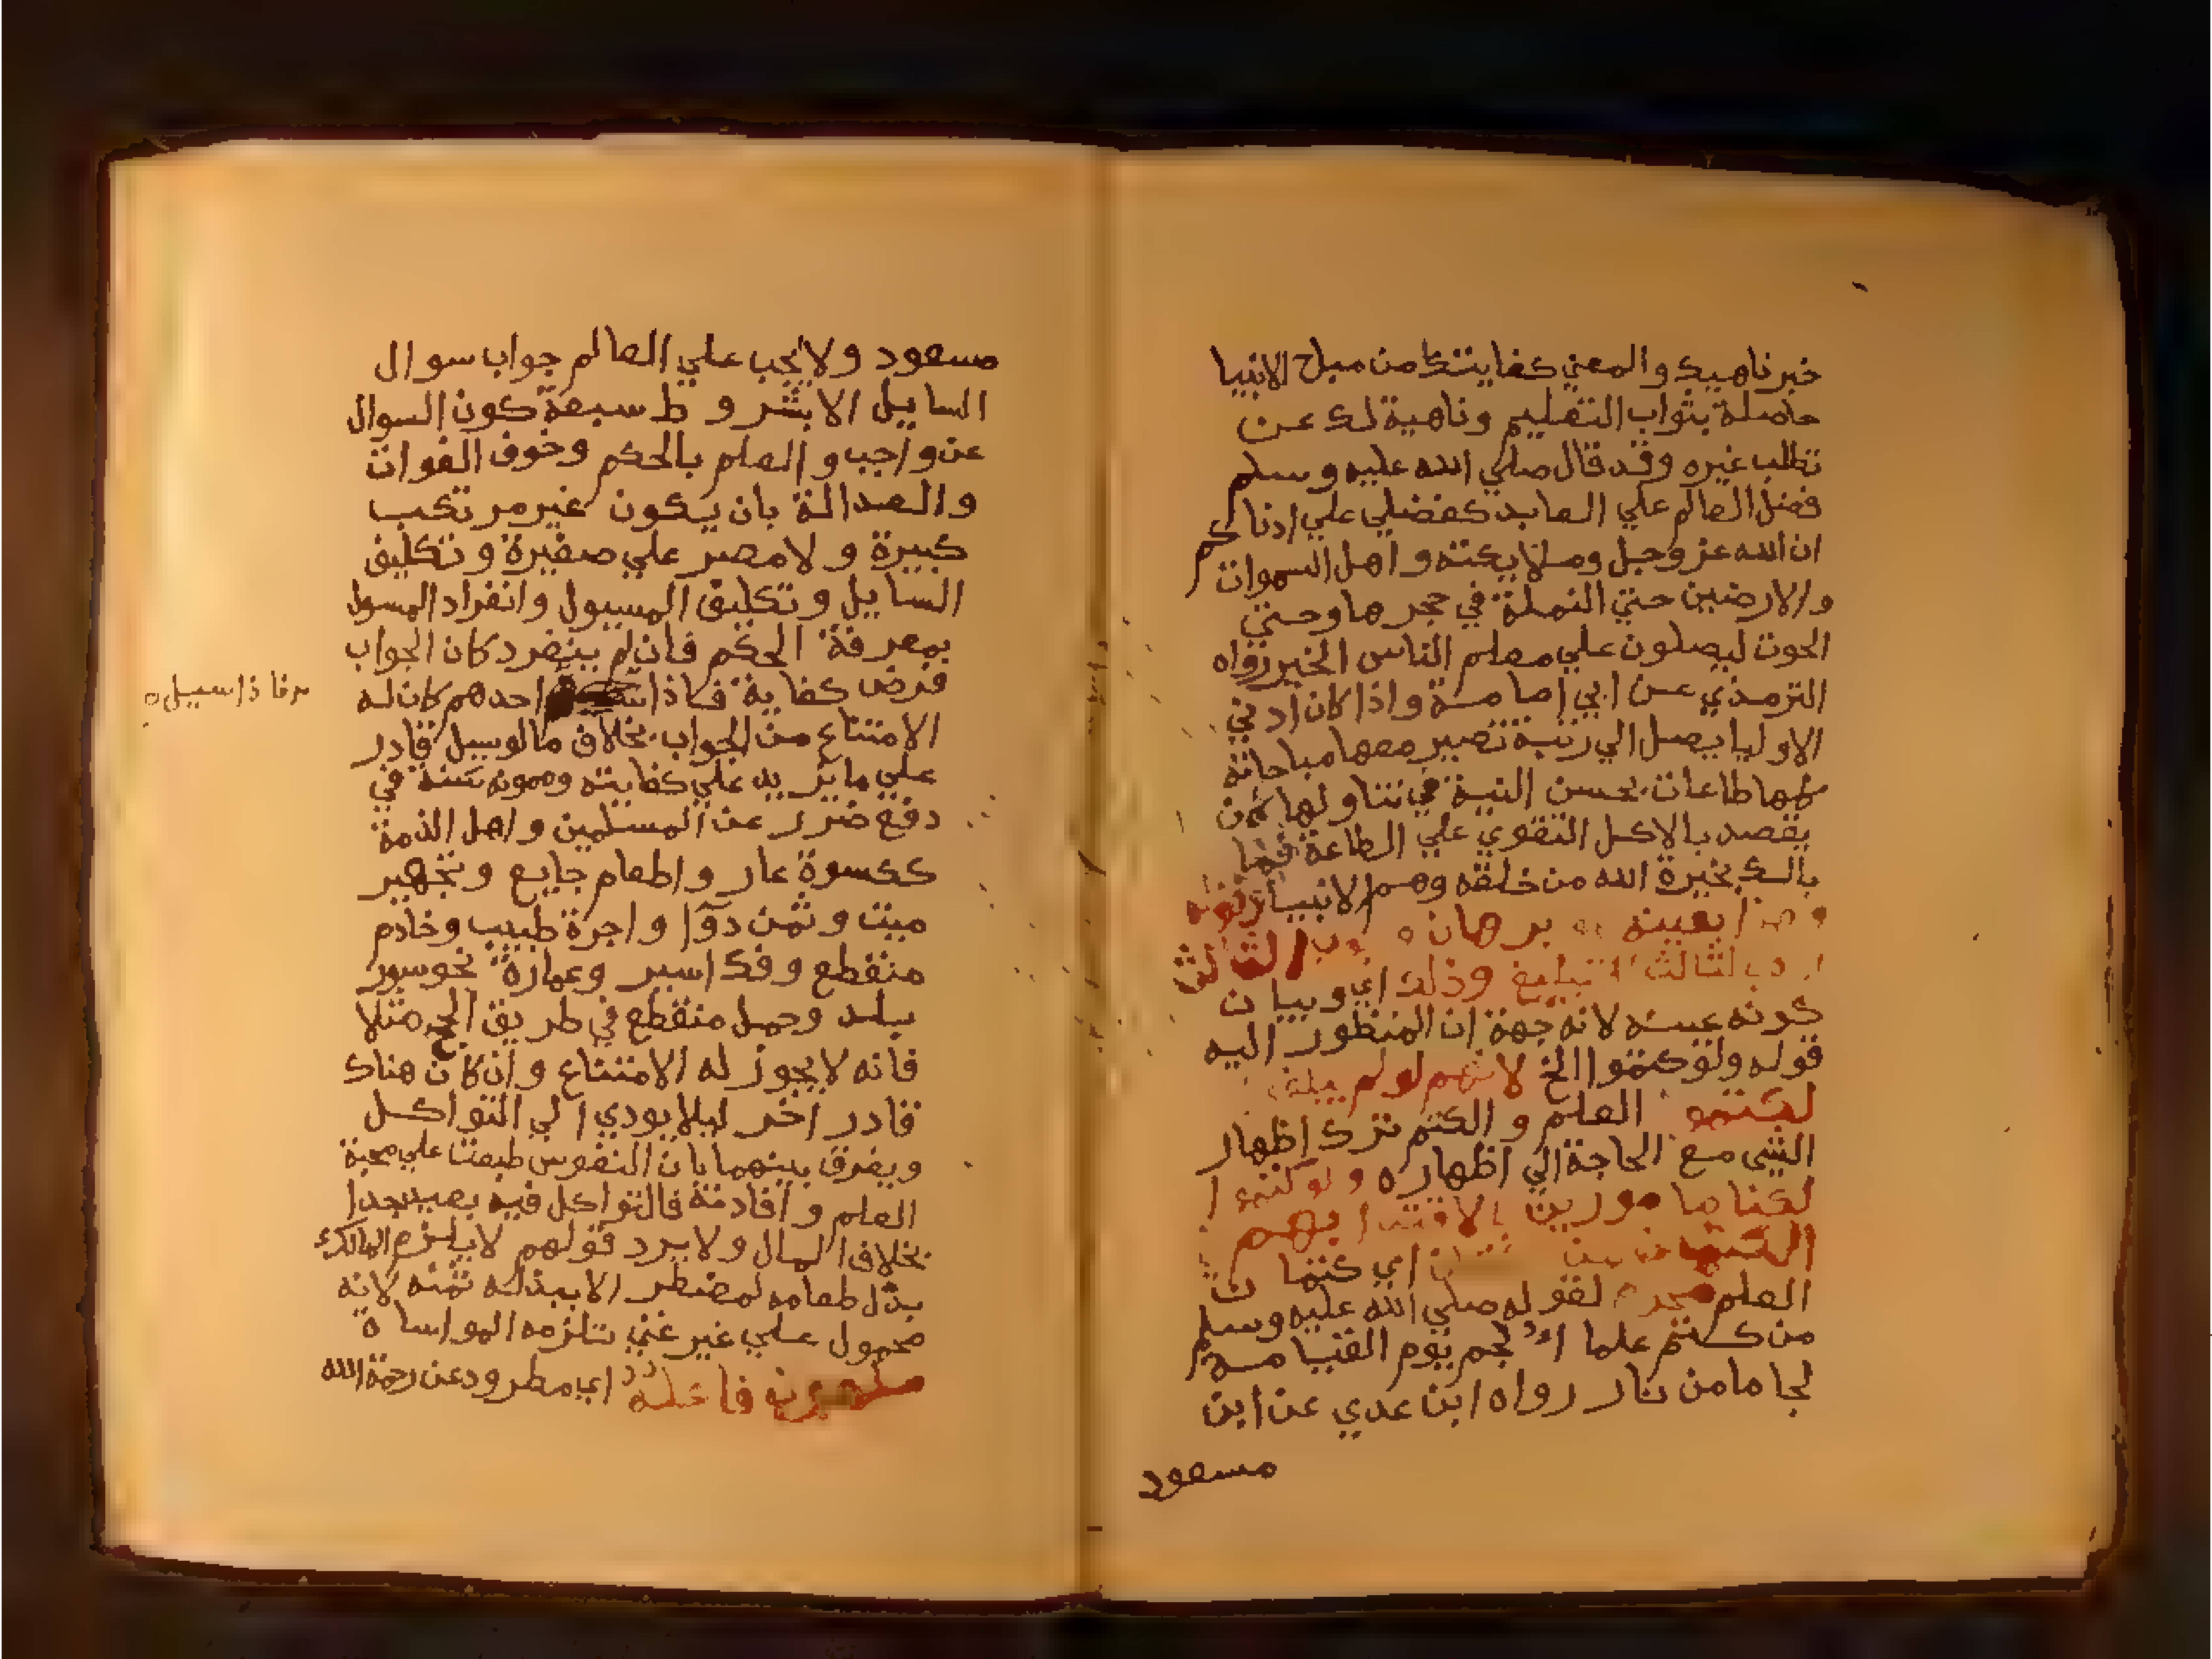 خبر ناهيك والمعني كفايتك من مباح الانبيا
حاصلة بثواب التعليم وناهية لك عن
تطلب غيره وقد قال صلي الله عليه وسلم
فضل العالم علي العابد كفضلي علي ادناكم
ان الله عز وجل وملايكته واهل السموات
والارضين حتي النملة في جحرها وحتي
الحوت ليصلون علي معلم الناس الخير رواه
الترمذي عن ابي امامة واذا كان ادني
الاوليا يصل الي رتبة تصير معها مباحاته
كلها طاعات بحسن النية في تناولها كمن
يقصد بالاكل التقوي علي الطاعة فما
بالك بخيرة الله من خلقه وهم الانبيا
بعينه برهان الثالث
الثالث وذلك اي وبيان
كونه عينه لانه جهة ان المنظور اليه
قوله ولو كتموا الخ لانهم لو لم يبلغوا
لكتموا العلم والكتم ترك اظهار
الشي مع الحاجة الي اظهاره ولو كتموا
لكنا مامورين بالاقتدا بهم
اي كتمان
العلم محرم لقوله صلي الله عليه وسلم
من كتم علما الجم يوم القيامة
لجاما من نار رواه ابن عدي عن ابن
مسعود
مسعود ولا يجب علي العالم جواب سوال
السايل الا بشروط سبعة كون السوال
عن واجب والعلم بالحكم وخوف الفوات
والعدالة بان يكون غير مرتكب
كبيرة ولا مصر علي صغيرة وتكليف
السايل وتكليف المسيول وانفراد المسول
بمعرفة الحكم فان لم ينفرد كان الجواب
فرض كفاية فاذا احدهم كان له
الامتناع من الجواب بخلاف ما لو سيل قادر
علي ما يزيد علي كفايته وممونه سنة في
دفع ضرر عن المسلمين واهل الذمة
ككسوة عار واطعام جايع وتجهيز
ميت وثمن دوآ واجرة طبيب وخادم
منقطع وفك اسير وعمارة نحو سور
بلد وحمل منقطع في طريق الحج مثلا
فانه لا يجوز له الامتناع وان كان هناك
قادر اخر ليلا يودي الي التواكل
ويفرق بينهما بان النفوس طبعت علي محبة
العلم وافادته فالتواكل فيه بعيد جدا
بخلاف المال ولا يرد قولهم لا يلزم المالك
بذل طعامه لمضطر الا ببذله ثمنه لانه
محمول علي غير غني تلزمه المواساة
ملعون فاعله اي مطرود عن رحمة الله
فاذا سيل